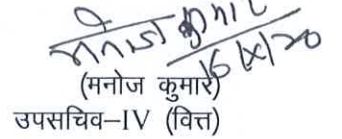 मनोज कुमार
16/x/20
(मनोज कुमार)
उपसचिव–IV (वित्त)